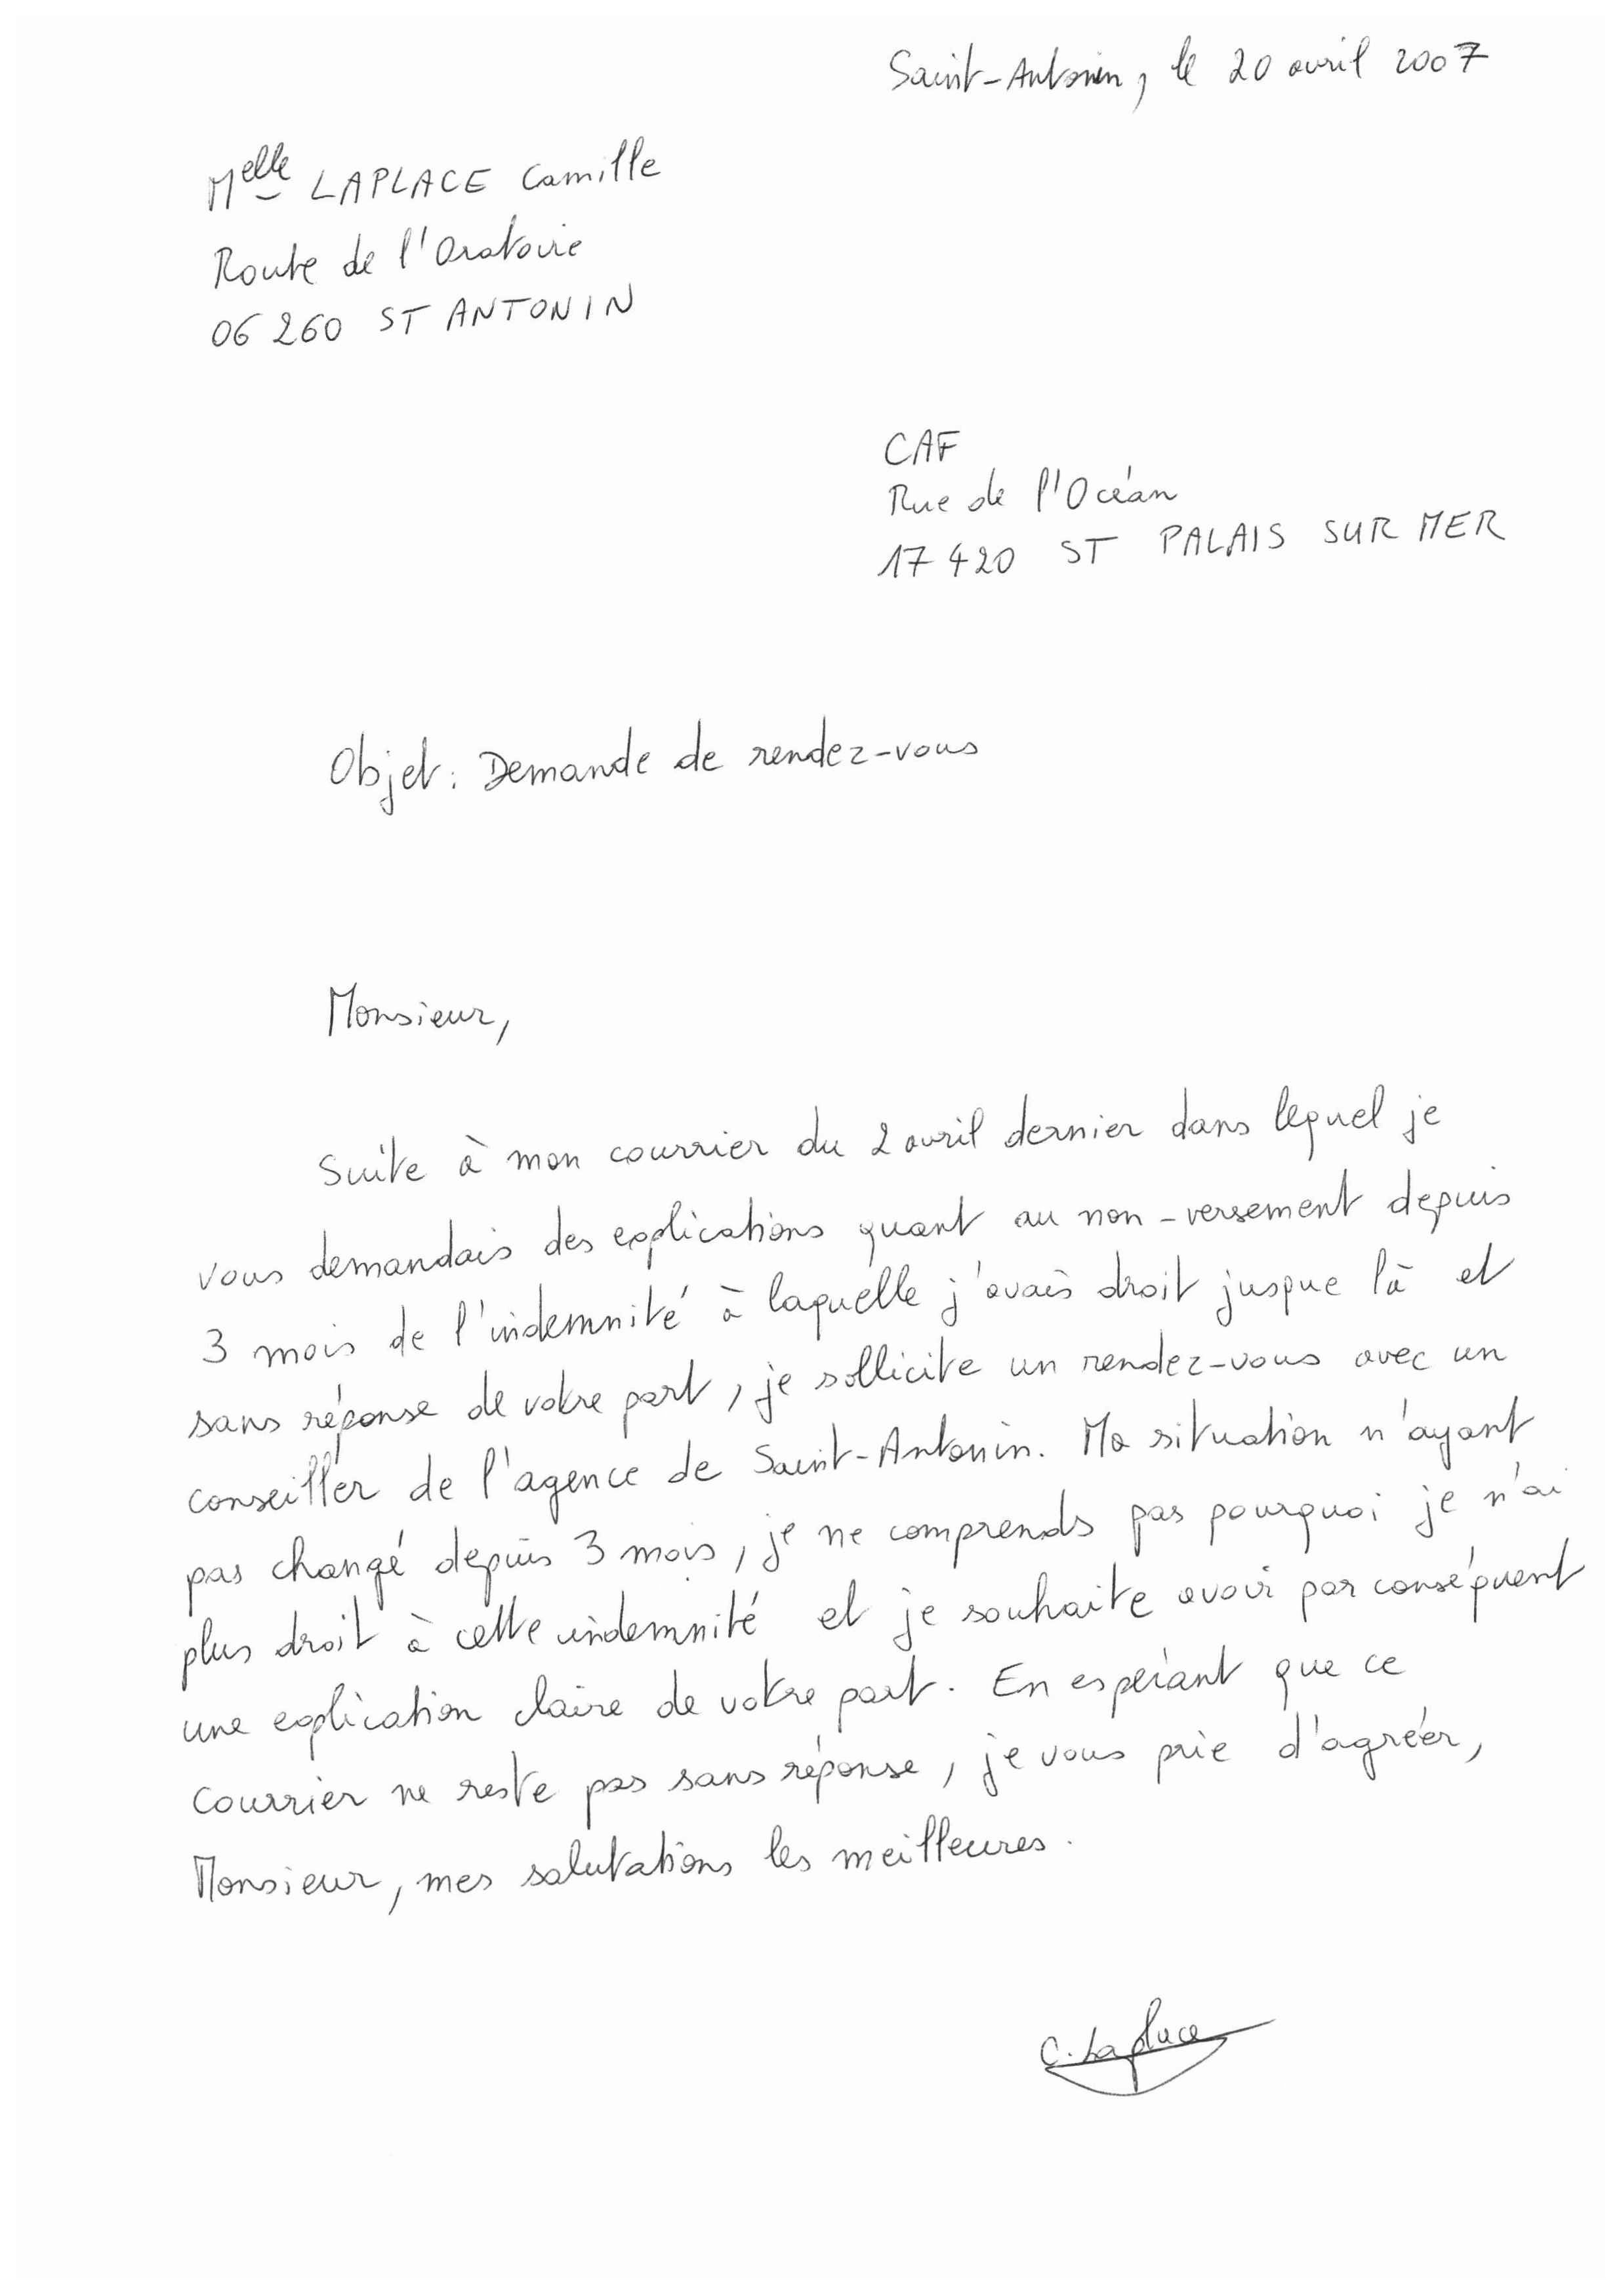 Saint-Antonin, le 20 avril 2007
Melle LAPLACE Camille
Route de l'Oratoire
06 260 ST ANTONIN
CAF
Rue de l'Océan
17 420 ST PALAIS SUR MER
Objet : Demande de rendez-vous
Monsieur,
Suite à mon courrier du 2 avril dernier dans lequel je
vous demandais des explications quant au non-versement depuis
3 mois de l'indemnité à laquelle j'avais droit jusque là et
sans réponse de votre part, je sollicite un rendez-vous avec un
conseiller de l'agence de Saint-Antonin. Ma situation n'ayant
pas changé depuis 3 mois, je ne comprends pas pourquoi je n'ai
plus droit à cette indemnité et je souhaite avoir par conséquent
une explication claire de votre part. En espérant que ce
courrier ne reste pas sans réponse, je vous prie d'agréer,
Monsieur, mes salutations les meilleures.
C. Laplace